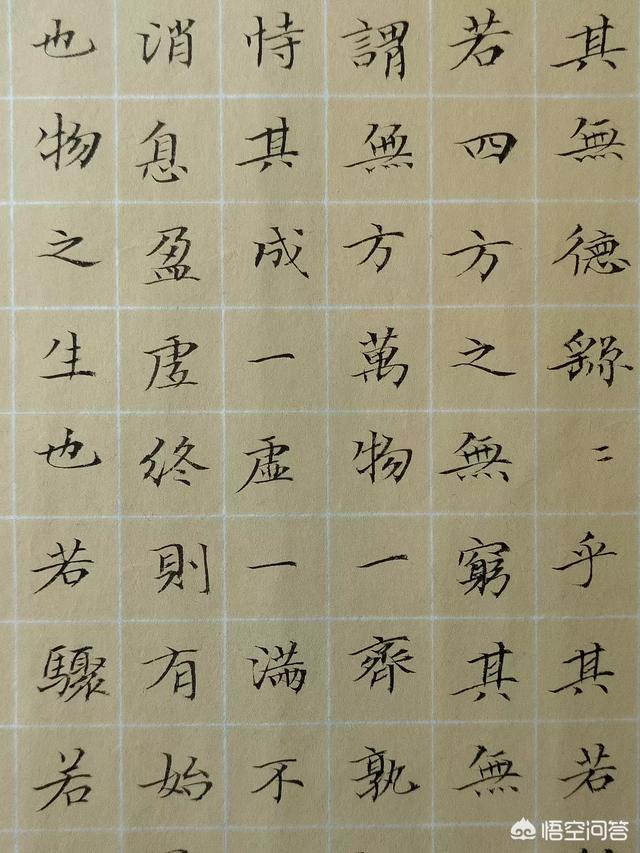 其無德繇々乎其若
若四方之無窮其無
謂無方萬物一齊孰
恃其成一虛一滿不
消息盈虛終則有始
也物之生也若驟若
悟空问答